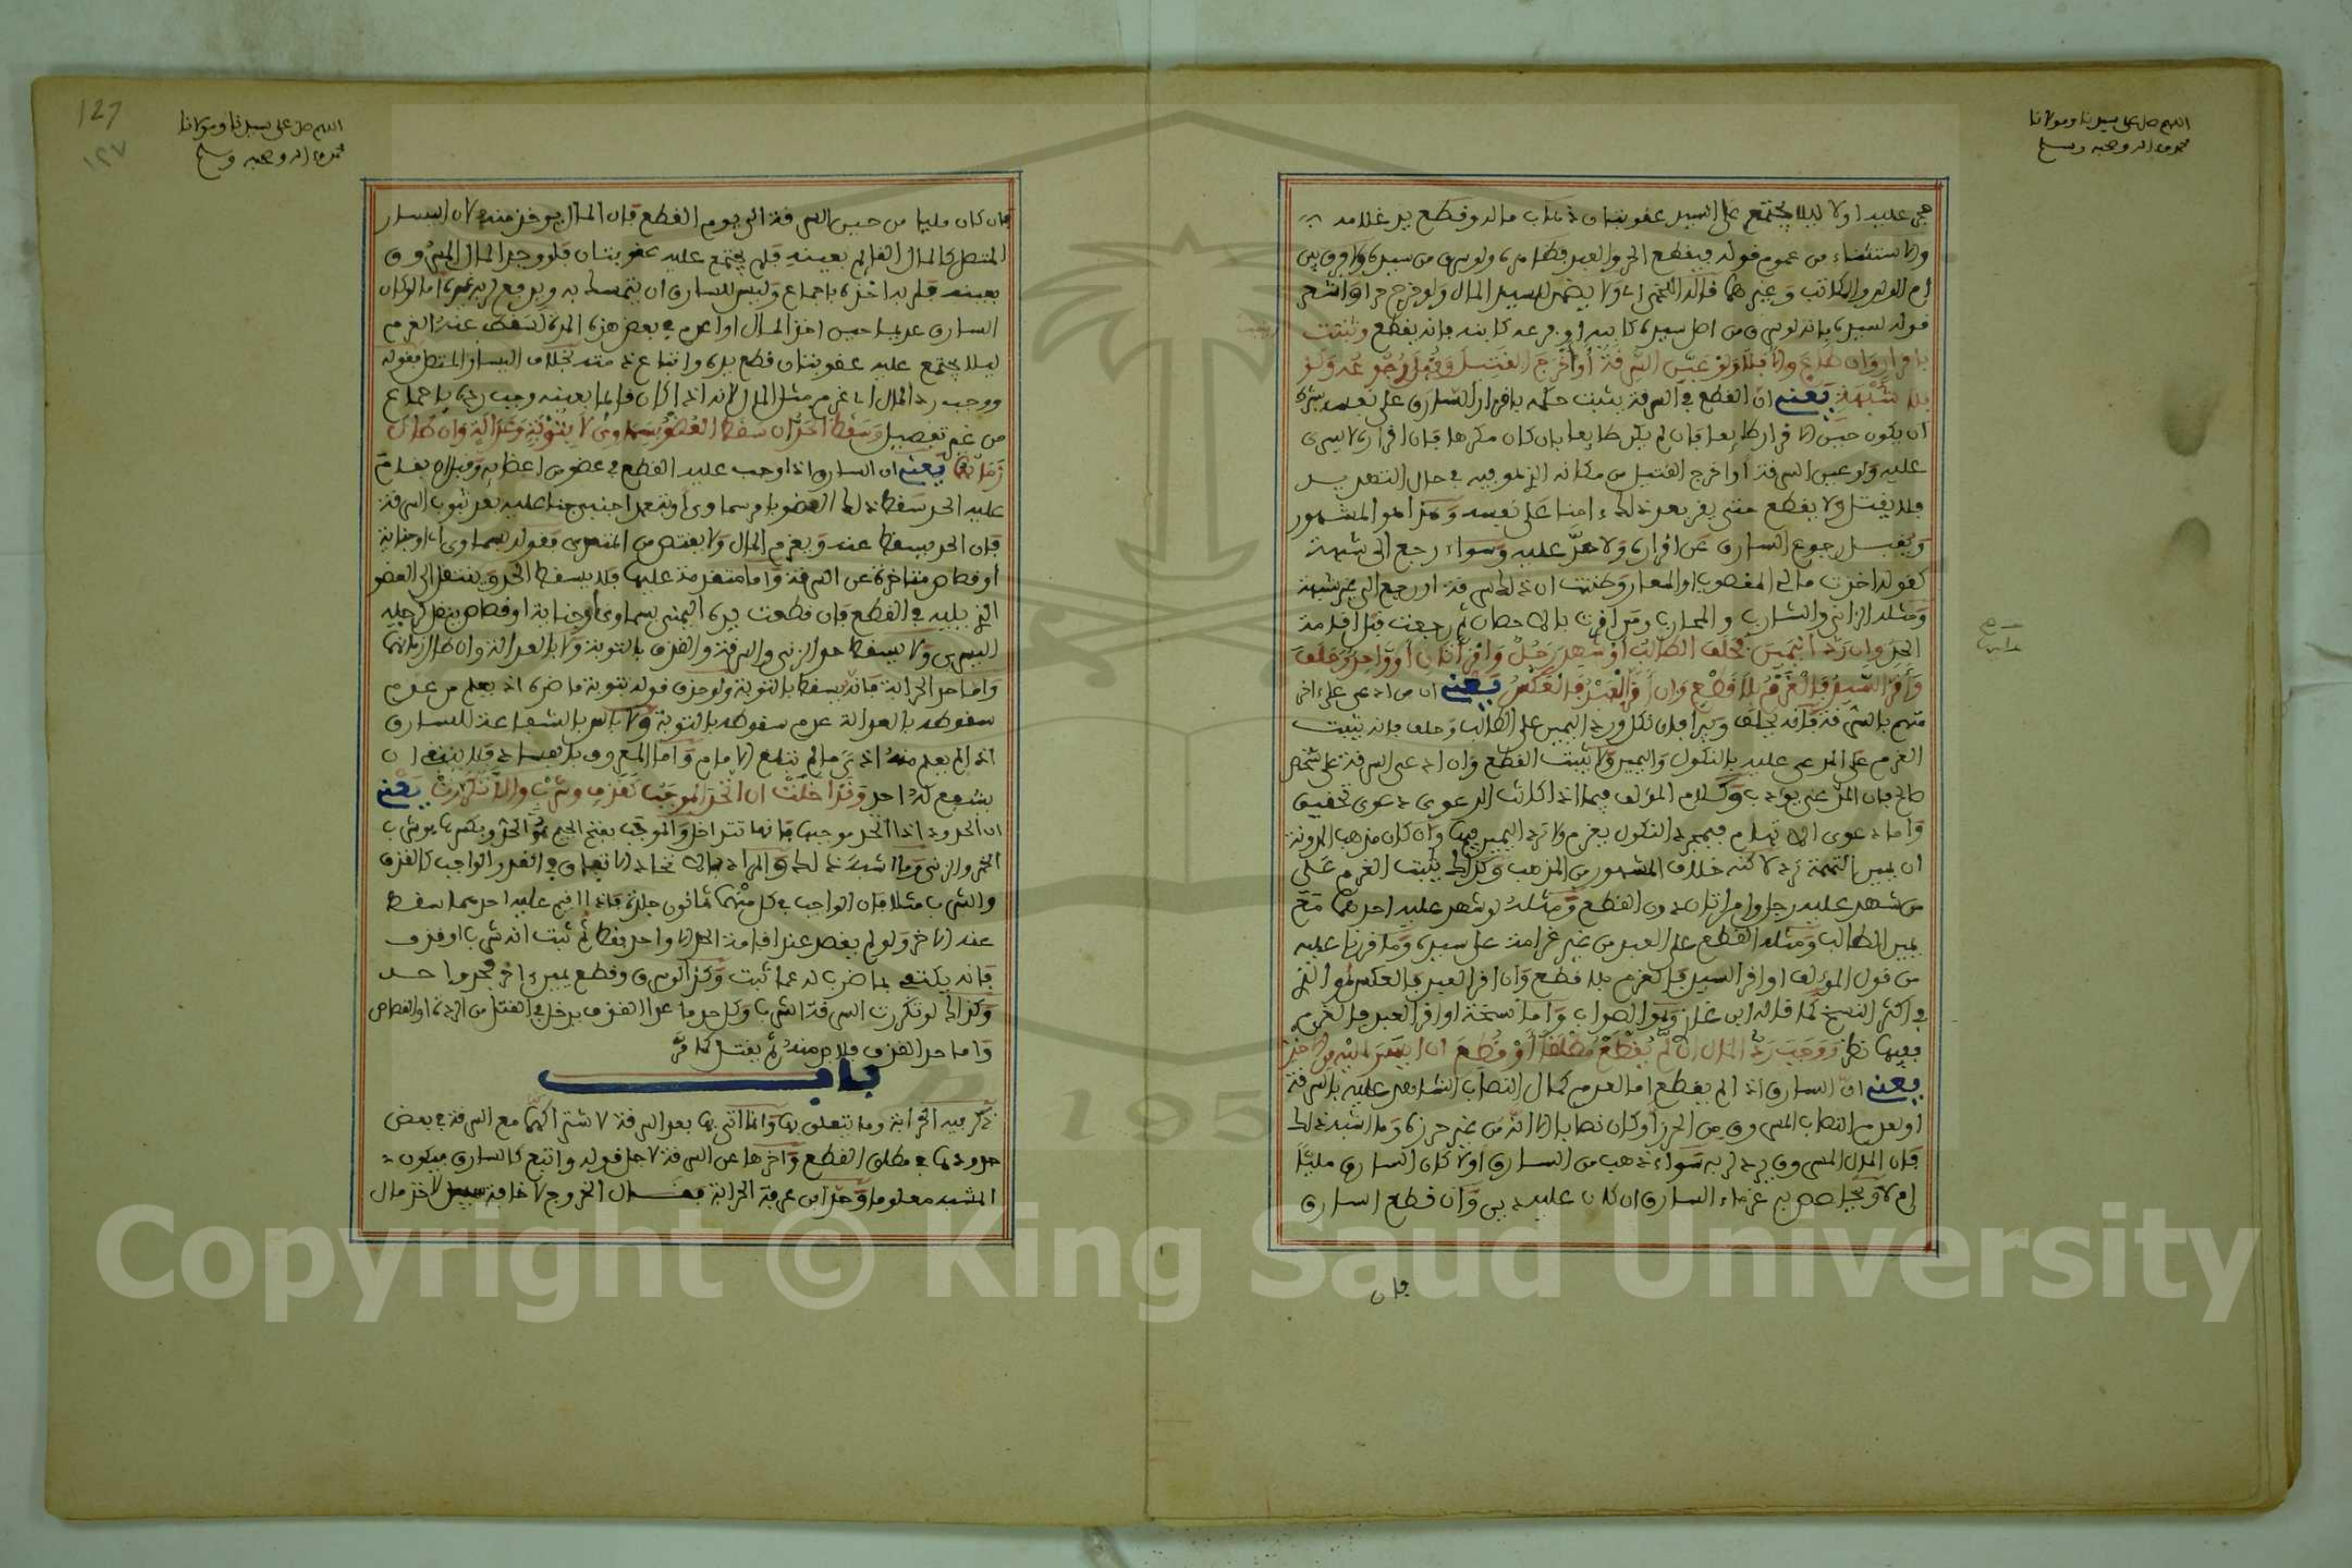 اللهم صل على سيدنا ومولانا
محمد وءاله وصحبه وسلم
حجر عليه اولا ليلا يجتمع على السيد عقوبتان ذهاب ماله وقطع يد غلامه
والاستثناء من عموم قوله فيقطع الحر والعبد فظاهره ولو سرق من سيده ولا فرق بين
ام الولد والمكاتب وغيرهما قاله اللخمي اى ولا يضمن للسيد المال ولو خرج حرا واشعر
قوله لسيده بانه لو سرق من اصل سيده كابيه او فرعه كابنه فانه يقطع وثبتت
باقرار ان طاع والا فلا ولو عين السرقة أو أخرج القتيل وقبل رجوعه ولو
بلا شبهة يعني ان القطع في السرقة يثبت حكمه باقرار السارق على نفسه بشرط
ان يكون حين الاقرار طايعا فان لم يكن طايعا بان كان مكرها فان اقراره لا يسرى
عليه ولو عين السرقة او اخرج القتيل من مكانه الذي هو فيه في حال التهديد
فلا يقتل ولا يقطع حتى يقر بعد ذلك ءامنا على نفسه وهذا هو المشهور
ويقبل رجوع السارق عن اقراره ولا حد عليه وسواء رجع الى شبهة
كقوله اخذت مالي المغصوب او المعار وظننت ان ذلك سرقة او رجع الى غير شبهة
ومثله الزاني والشارب والمحارب ومن اقرت بالاحصان ثم رجعت قبل اقامة
الحد وان رد اليمين فحلف الطالب أو شهد رجل وامرأتان أو واحد وحلف
وأقر السيد فالغرم بلا قطع وان أقر العبد فالعكس يعني ان من ادعى على ءاخر
متهم بالسرقة فانه يحلف ويبرأ فان نكل ورد اليمين على الطالب وحلف فانه يثبت
الغرم على المدعى عليه بالنكول واليمين ولا يثبت القطع وان ادعى السرقة على شخص
صالح فان المدعي يؤدب وكلام المؤلف فيما اذا كانت الدعوى دعوى تحقيق
واما دعوى الاتهام فبمجرد النكول يغرم ولا ترد اليمين فيها وان كان مذهب المدونة
ان يمين التهمة ترد لاكنه خلاف المشهور من المذهب وكذلك يثبت الغرم على
من شهد عليه رجل وامرأتان دون القطع ومثله لو شهد عليه احدهما مع
يمين الطالب ومثله القطع على العبد من غير غرامة على سيده وما قررنا عليه
من قول المؤلف او اقر السيد فالغرم بلا قطع وان اقر العبد فالعكس هو الذي
في اكثر النسخ كما قاله ابن غازي وهو الصواب واما نسخة او اقر العبد فالغرم
ففيها نظر ووجب رد المال ان لم يقطع مطلقا أو قطع ان ايسر اليه من الاخذ
يعني ان السارق اذا لم يقطع اما لعدم كمال النصاب الشاهد عليه بالسرقة
او لعدم النصاب المسروق من الحرز او كان نصابا الا انه من غير حرز وما اشبه ذلك
فان المال المسروق يرد لربه سواء ذهب من السارق اولا كان السارق مليئا
ام لا ويحاصص به غرماء السارق ان كان عليه دين وان قطع السارق
فان
127
١٢٧
اللهم صل على سيدنا ومولانا
محمد وءاله وصحبه وسلم
فان كان مليا من حين السرقة الى يوم القطع فان المال يوخذ منه لان اليسار
المتصل كالمال القائم بعينه فلم يجتمع عليه عقوبتان فلو وجد المال المسروق
بعينه فلربه اخذه باجماع وليس للسارق ان يتمسك به ويدفع لربه غيره اما لو كان
السارق عديما حين اخذ المال او اعدم في بعض هذه المدة لسقط عنه الغرم
ليلا يجتمع عليه عقوبتان قطع يده واتباع ذمته بخلاف اليسار المتصل فقوله
ووجب رد المال اى غرم مثل المال لانه اذا كان قائما بعينه وجب رده باجماع
من غير تفصيل وسقط الحد ان سقط العضو بسماوى لا بتوبة وعدالة وان طال
زمانهما يعني ان السارق اذا وجب عليه القطع في عضو من اعضايه وقبل ان يقام
عليه الحد سقط ذلك العضو بامر سماوى او بتعمد اجنبي جنا عليه بعد ثبوت السرقة
فان الحد يسقط عنه ويغرم المال ولا يقتص من المتعدي فقوله بسماوى اى او جناية
أو قصاص متاخرة عن السرقة واما متقدمة عليها فلا يسقط الحد وينتقل الى العضو
الذي يليه في القطع فان قطعت يده اليمنى بسماوى او جناية او قصاص ينتقل لرجله
اليسرى ولا يسقط حد الزنى والسرقة والقذف بالتوبة ولا بالعدالة وان طال زمانهما
واما حد الحرابة فانه يسقط بالتوبة ولو حذف قوله بتوبة ما ضره اذ يعلم من عدم
سقوطه بالعدالة عدم سقوطه بالتوبة ولا باس بالشفاعة للسارق
اذا لم يعلم منه اذى ما لم تبلغ الامام واما المعروف بالفساد فلا ينبغي ان
يشفع له احد وتداخلت ان اتحد الموجب كقذف وشرب والا تكررت يعني
ان الحدود اذا اتحد موجبها فانها تتداخل والموجب بفتح الجيم هو الحد وبكسرها هو شرب
الخمر والزنى وما اشبه ذلك والمراد بالاتحاد الاتفاق في القدر الواجب كالقذف
والشرب مثلا فان الواجب في كل منهما ثمانون جلدة فاذا اقيم عليه احدهما سقط
عنه الاخر ولو لم يقصد عند اقامة الحد الا واحد فقط ثم ثبت انه شرب او قذف
فانه يكتفى بما ضرب له عما ثبت وكذا لو سرق وقطع يمين ءاخر فحد واحد
وكذا اذا لو تكررت السرقة الشرب وكل حد ما عدا القذف يدخل في القتل من الردة او القصاص
واما حد القذف فلا بد منه ثم يقتل كما مر
باب
ذكر فيه الحرابة وما يتعلق بها وانما اتى بها بعد السرقة لاشتراكهما مع السرقة في بعض
حدودها في مطلق القطع واخرها عن السرقة لاجل قوله واتبع كالسارق فيكون
المشبه معلوما وحد ابن عرفة الحرابة فقال الخروج لاخافة سبيل لاخذ مال